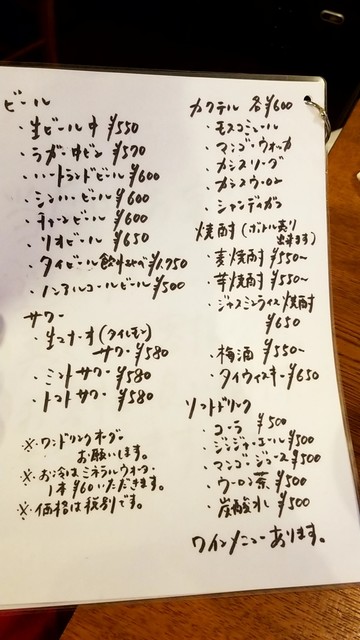 ビール
・生ビール中 ¥550
・ラガー中ビン ¥570
・ハートランドビール ¥600
・シンハービール ¥600
・チャーンビール ¥600
・リオビール ¥650
・タイビール飲みくらべ ¥1.750
・ノンアルコールビール ¥500
サワー
・生マナーオ(タイレモン)
サワー ¥580
・ミントサワー ¥580
・トマトサワー ¥580
※・ワンドリンクオーダー
お願いします。
※・お冷はミネラルウォーター
1本 ¥60いただきます。
※・価格は税別です。
カクテル 各¥600
・モスコミュール
・マンゴーウォッカ
・カシスソーダ
・カシスウーロン
・シャンディガフ
焼酎(ボトル売り
出来ます)
・麦焼酎 ¥550~
・芋焼酎 ¥550~
・ジャスミンライス焼酎
¥650
・梅酒 ¥550~
・タイウィスキー ¥650
ソフトドリンク
・コーラ ¥500
・ジンジャーエール ¥500
・マンゴージュース ¥500
・ウーロン茶 ¥500
・炭酸水 ¥500
ワインメニューあります。